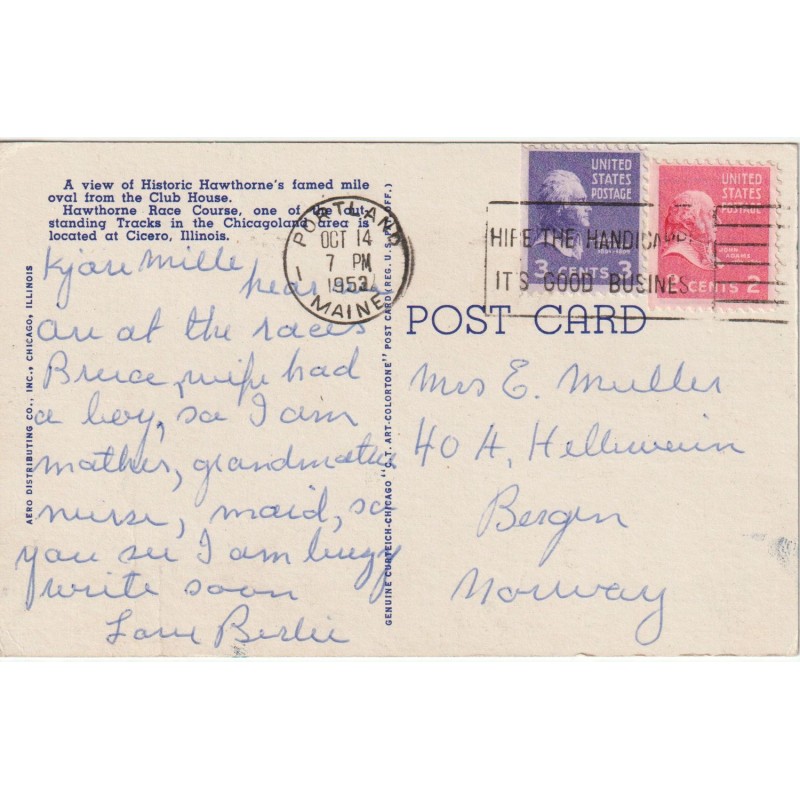 A view of Historic Hawthorne's famed mile
oval from the Club House.
Hawthorne Race Course, one of the out-
standing Tracks in the Chicagoland area is
located at Cicero, Illinois.
Kjære Mille
hear
are at the races
Bruce, wife had
a boy, so I am
mother, grandmother
nurse, maid, so
you see I am busy
write soon
Love Berlie
AERO DISTRIBUTING CO., INC., CHICAGO, ILLINOIS
GENUINE CURTEICH-CHICAGO "C.T. ART-COLORTONE" POST CARD (REG. U.S. PAT. OFF.)
PORTLAND
OCT 14
7 PM
1953
MAINE
1
UNITED
STATES
POSTAGE
3 CENTS 3
UNITED
STATES
POSTAGE
JOHN
ADAMS
2 CENTS 2
HIRE THE HANDICAPPED
IT'S GOOD BUSINESS
POST CARD
Mrs E. Muller
40 A,
Bergen
Norway